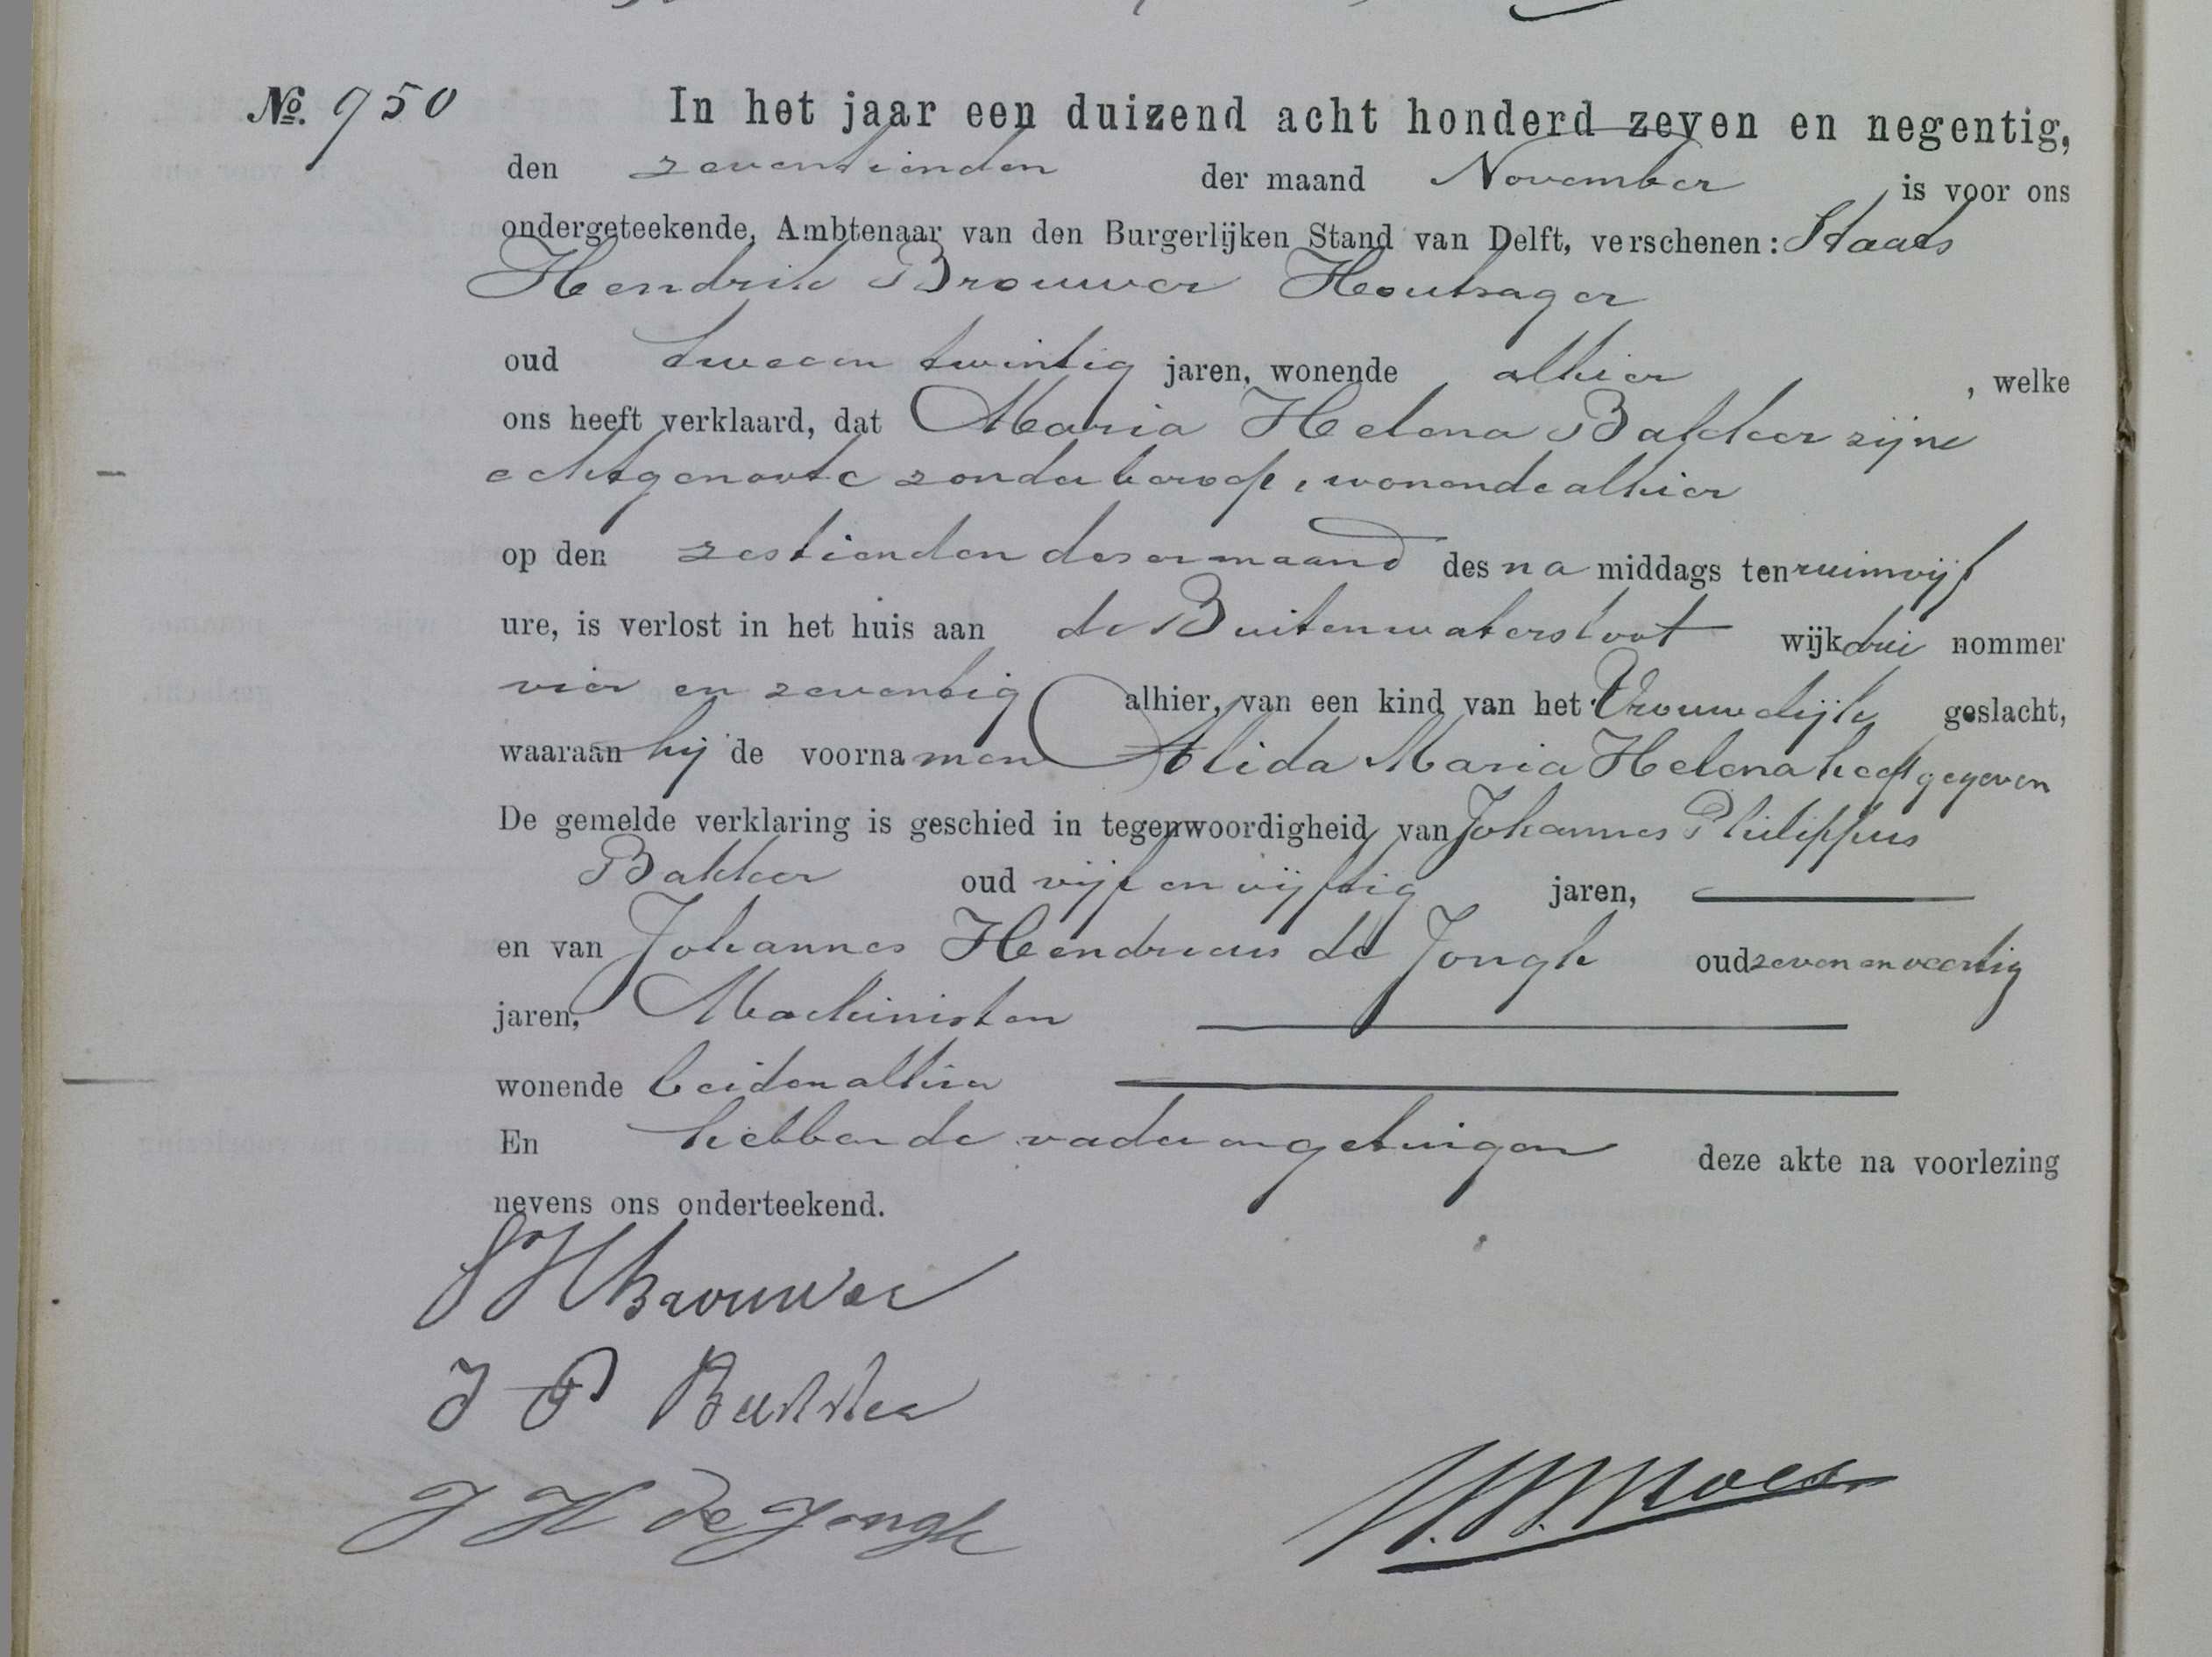 №. 950
In het jaar een duizend acht honderd zeven en negentig,
den zeventienden der maand November is voor ons
ondergeteekende, Ambtenaar van den Burgerlijken Stand van Delft, verschenen: Staats
Hendrik Brouwer Houtzager
oud tweeen twintig jaren, wonende alhier , welke
ons heeft verklaard, dat Maria Helena Bakker zijne
echtgenoote zonder beroep, wonende alhier
op den zestienden dezer maand des na middags ten ruim vijf
ure, is verlost in het huis aan de Buitenwatersloot wijk drie nommer
vier en zeventig alhier, van een kind van het Vrouwelijk geslacht,
waaraan hij de voornamen Alida Maria Helena heeft gegeven
De gemelde verklaring is geschied in tegenwoordigheid van Johannes Philippus
Bakker oud vijf en vijftig jaren,
en van Johannes Hendricus de Jongh oud zeven en veertig
jaren, Machinisten
wonende beiden alhier
En hebben de vader en getuigen deze akte na voorlezing
nevens ons onderteekend.
S H Brouwer
J P Bakker
J H de Jongh